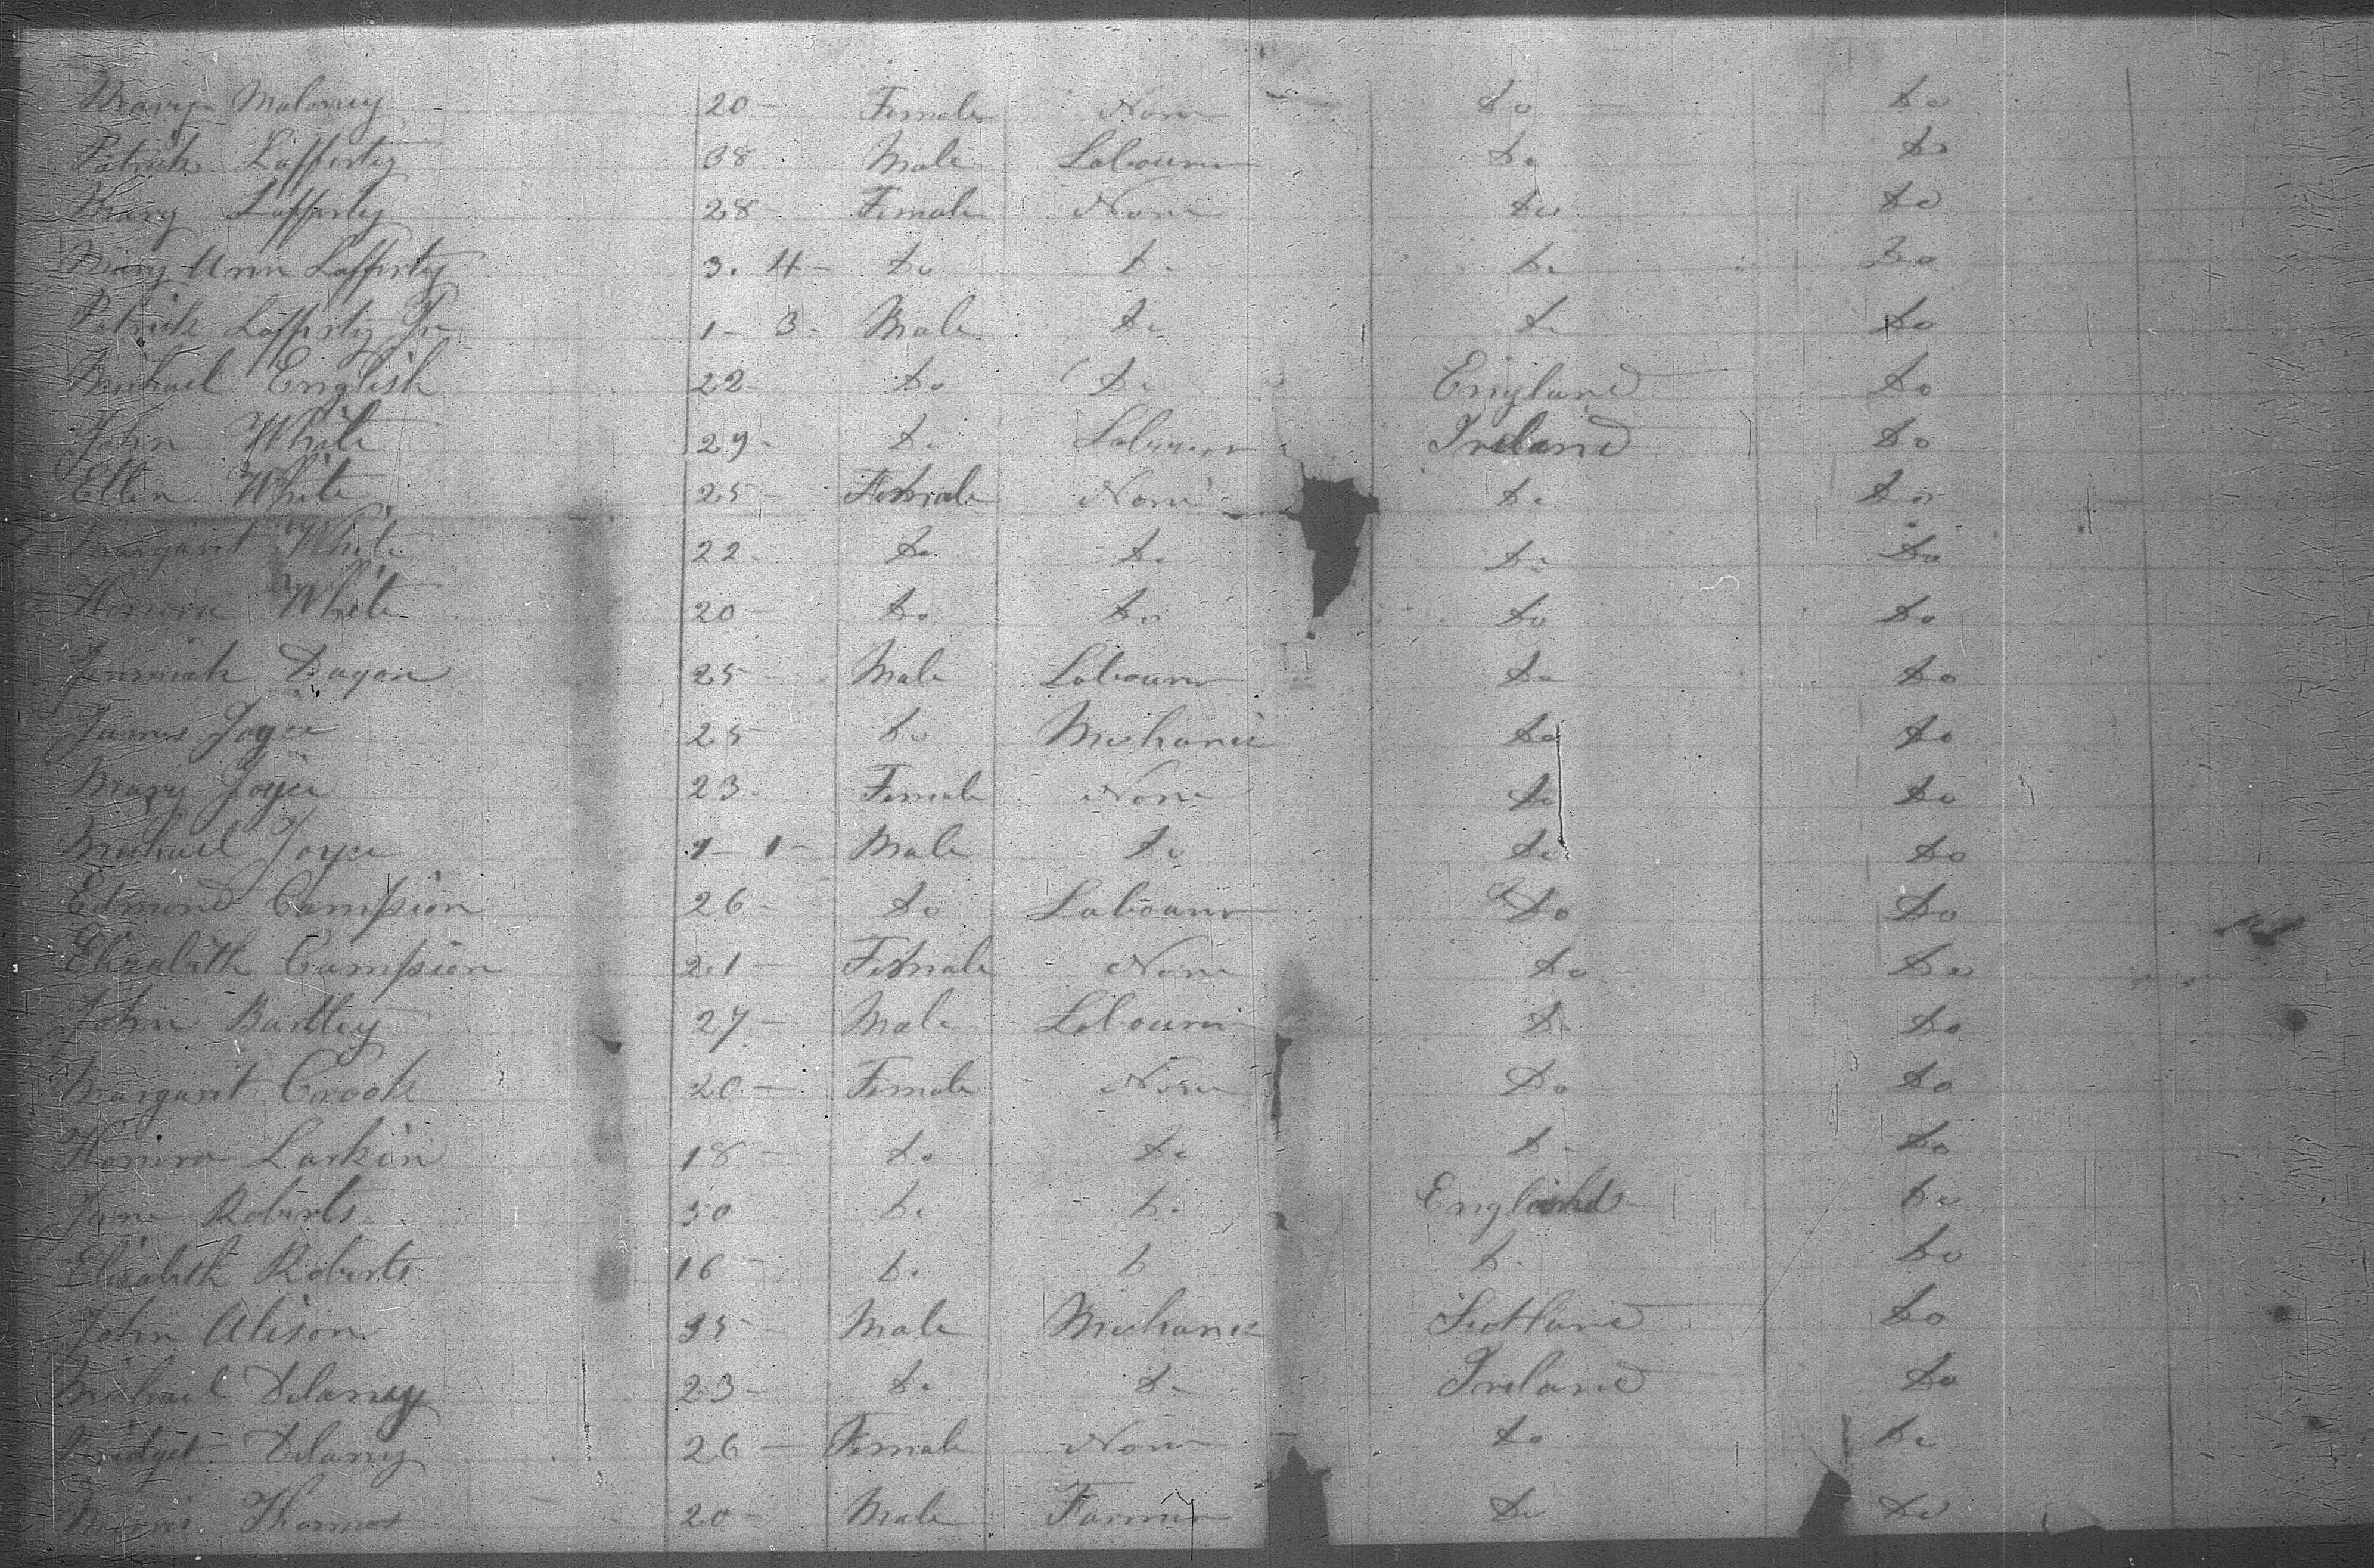 Mary Maloney 20 - Female None Do Do
Patrick Lafferty 38 Male Labourer Do Do
Mary Lafferty 28 - Female None Do Do
Mary Ann Lafferty 3. 4 - Do Do Do Do
Patrick Lafferty Jr 1 - 3 - Male Do Do Do
Michael English 22 - Do Do England Do
John White 29 - Do Labourer Ireland Do
Ellen White 25 - Female None Do Do
Margaret White 22 - Do Do Do Do
Honora White 20 - Do Do Do Do
Jeremiah Dagon 25 - Male Labourer Do Do
James Joyce 25 Do Mechanic Do Do
Mary Joyce 23 - Female None Do Do
Michael Joyce 1 - 1 - Male Do Do Do
Edmond Campion 26 - Do Labourer Do Do
Elizabeth Campion 21 - Female None Do Do
John Bartley 27 - Male Labourer Do Do
Margaret Crook 20 - Female None Do Do
Honora Larkin 18 - Do Do Do Do
Jane Roberts 50 Do Do England Do
Elizabeth Roberts 16 - Do Do Do Do
John Alison 35 - Male Mechanic Scotland Do
Michael Delaney 23 - Do Do Ireland Do
Bridget Delany 26 - Female None Do Do
Thomas 20 - Male Farmer Do Do